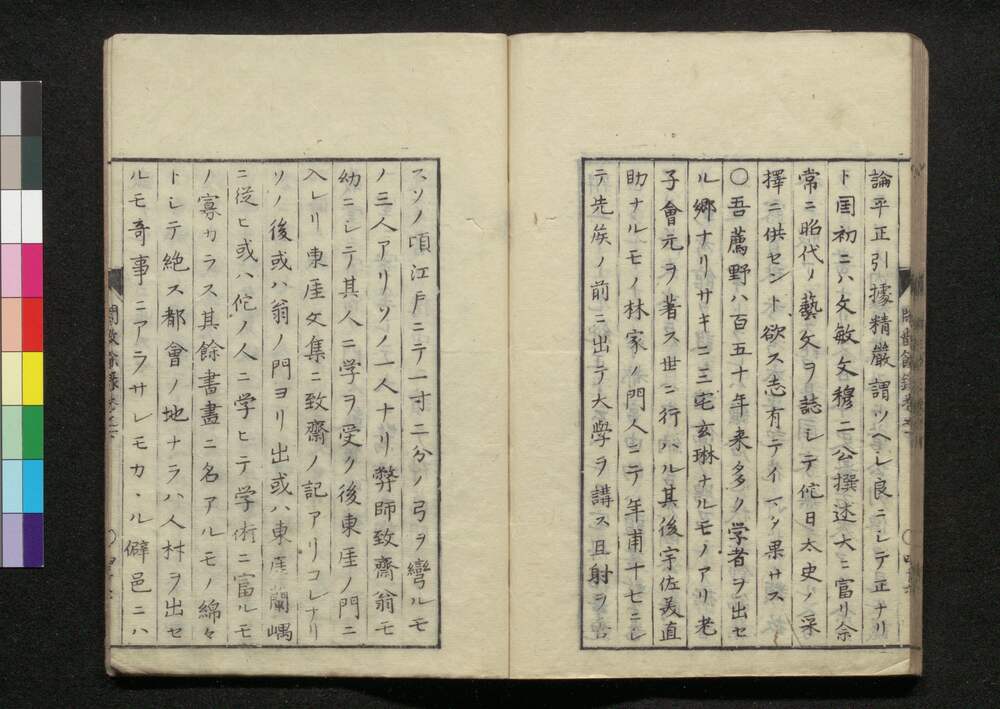 論平正引據精嚴謂ツヘレ良ニシテ正ナリ
ト国初ニハ文敏文穆二公撰述大ニ富リ余
常ニ昭代ノ藝文ヲ誌シテ佗日太史ノ采
擇ニ供セント欲ス志有テイマタ果サス
○吾薦野ハ百五十年来多ク学者ヲ出セ
ル郷ナリサキニ三宅玄琳ナルモノアリ老
子會元ヲ著ス世ニ行ハル其後宇佐美直
助ナルモノ林家ノ門人ニテ年甫十七ニシ
テ先矦ノ前ニ出テ大學ヲ講ス且射ヲ
スソノ頃江戸ニテ一寸二分ノ弓ヲ彎ルモ
ノ三人アリソノ一人ナリ弊師致齋翁モ
幼ニシテ其人ニ学ヲ受ク後東厓ノ門ニ
入レリ東厓文集ニ致齋ノ記アリコレナリ
ソノ後或ハ翁ノ門ヨリ出或ハ東厓蘭嵎
ニ從ヒ或ハ佗ノ人ニ学ヒテ学術ニ富ルモ
ノ寡カラス其餘書畫ニ名アルモノ綿々
トシテ絶ス都會ノ地ナラハ人材ヲ出セ
ルモ奇事ニアラサレモカヽル僻邑ニハ